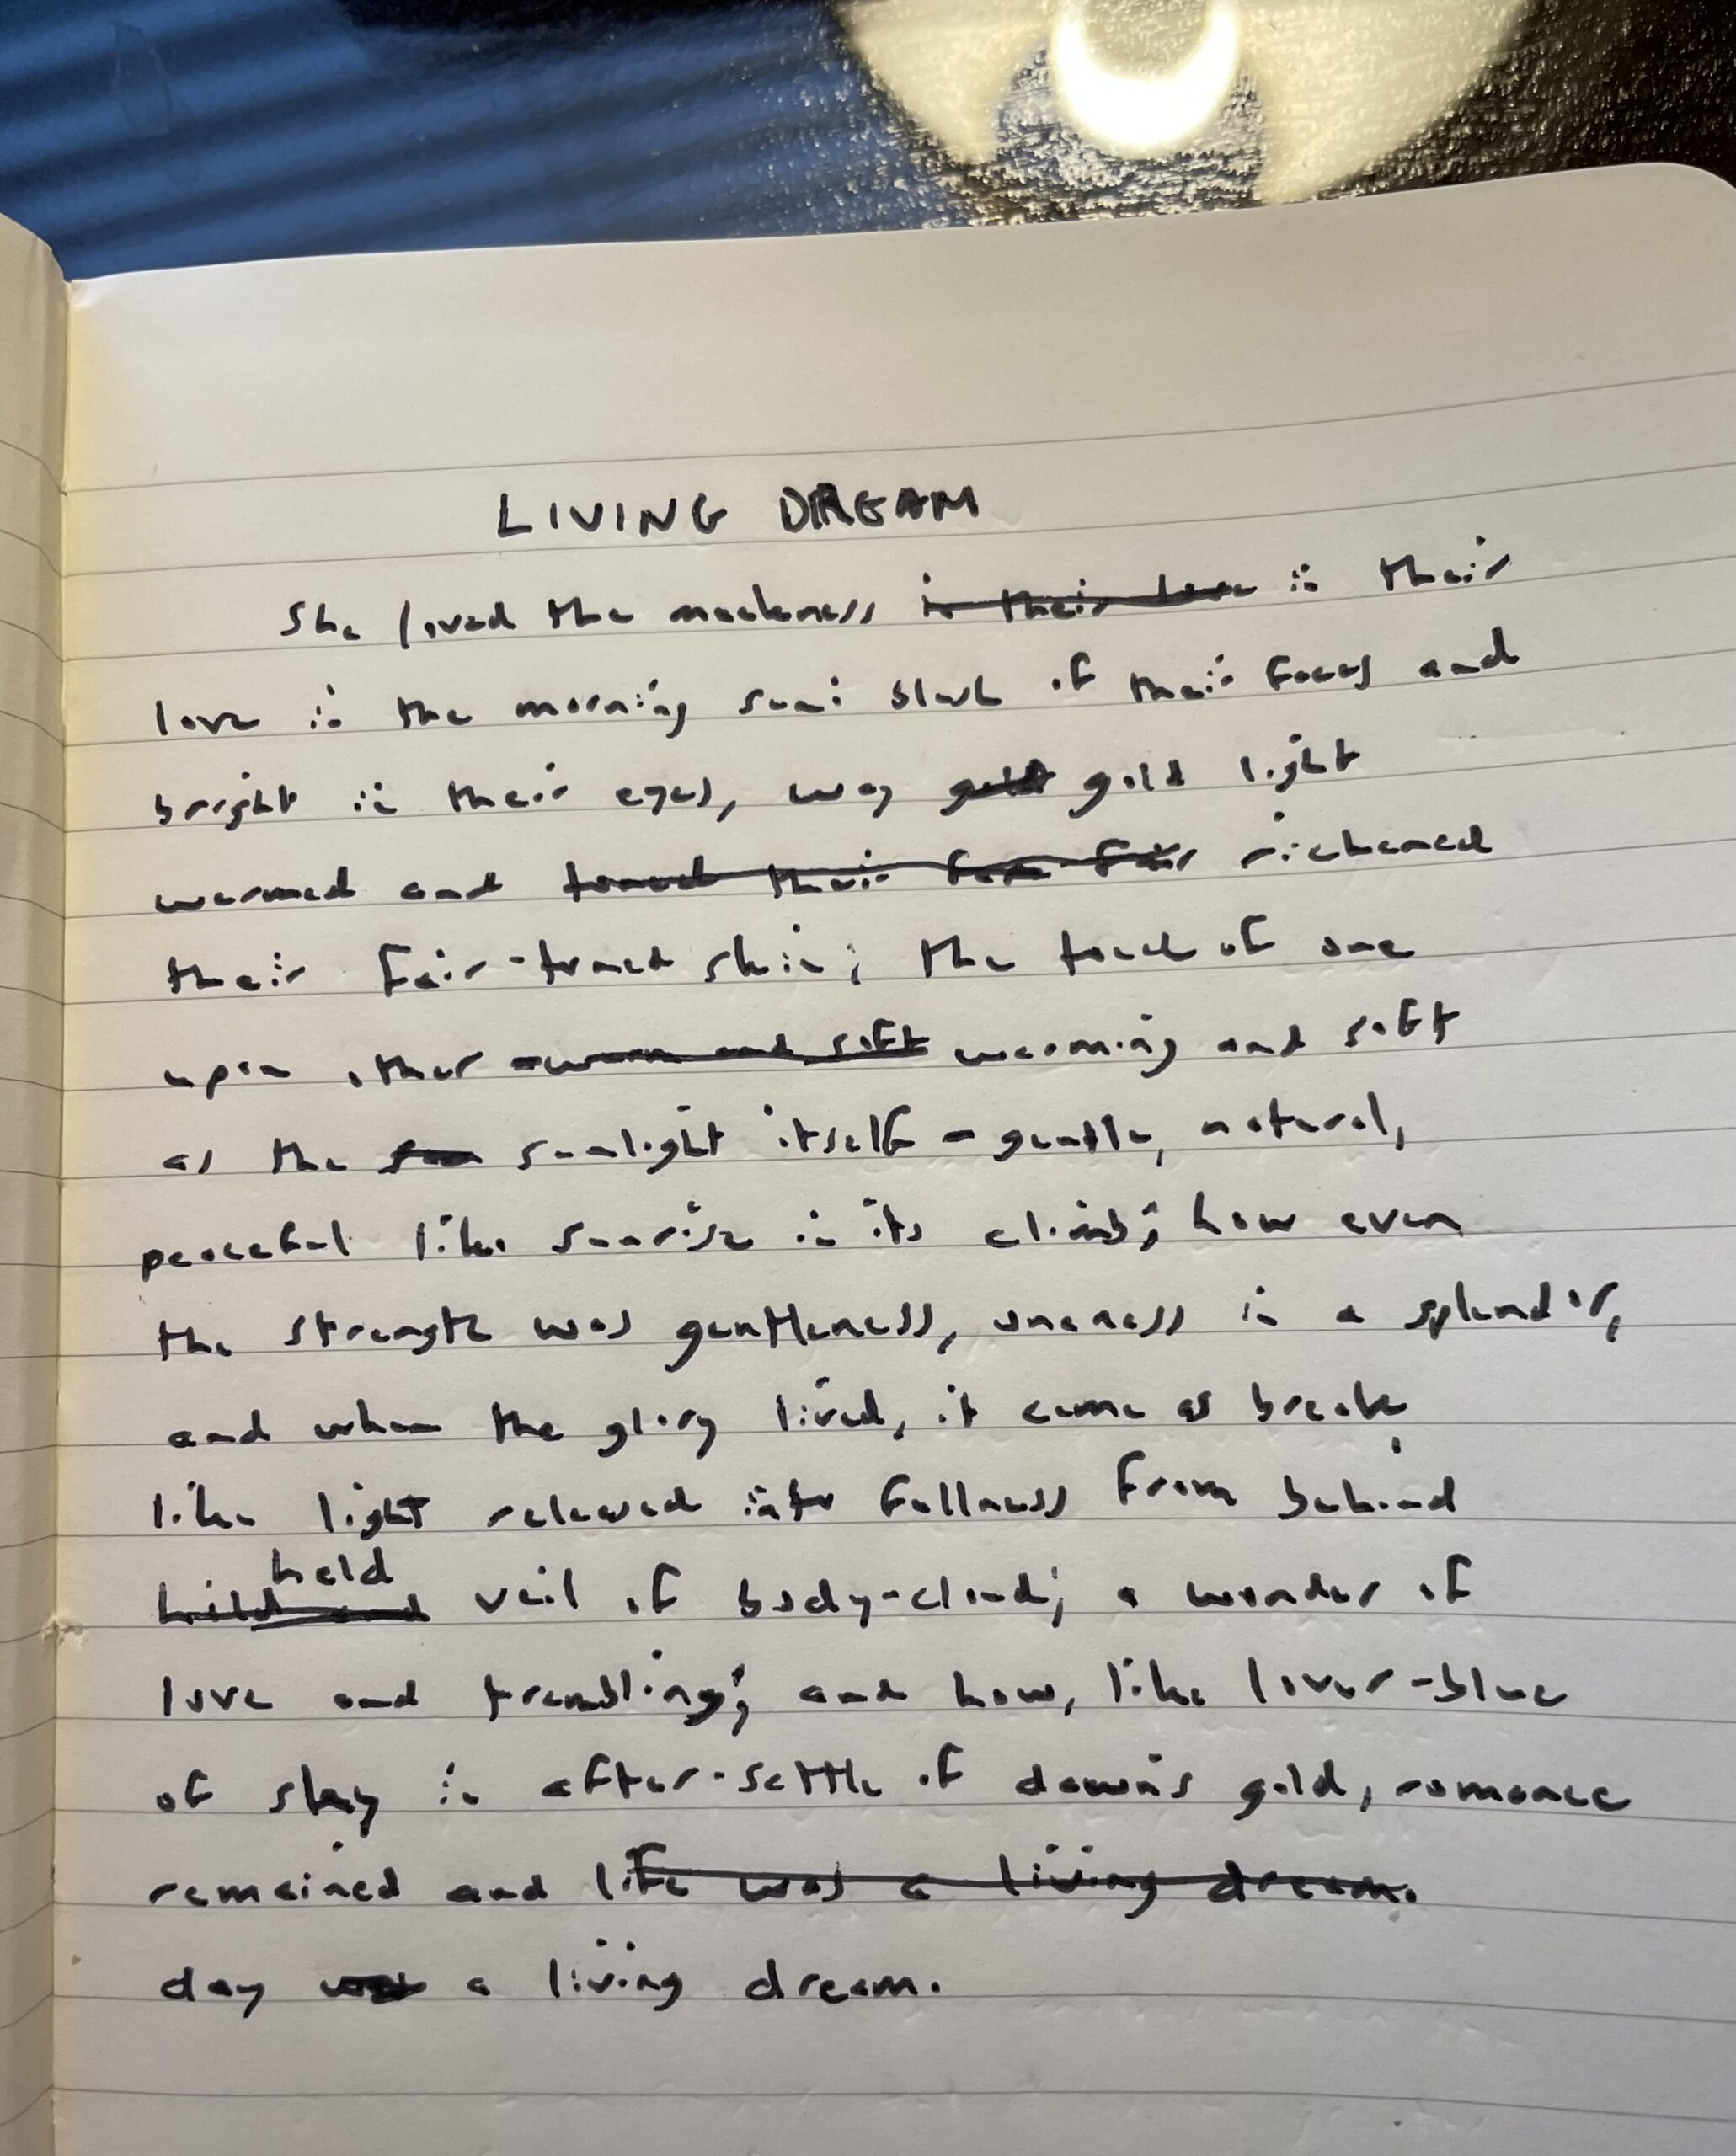 LIVING DREAM
She loved the meekness in their love in their
love in the morning sun: blush of their faces and
bright in their eyes, way gold gold light
warmed and toned their fair richened
their fair-toned skin; the touch of one
upon other warm and soft warming and soft
as the sun sunlight itself - gentle, natural,
peaceful like sunrise in its climb; how even
the strength was gentleness, oneness in a splendor,
and when the glory lived, it came as break,
like light released into fullness from behind
held
held and veil of body-cloud; a wonder of
love and trembling; and how, like lover-blue
of sky in after-settle of dawn's gold, romance
remained and life was a living dream.
day was a living dream.